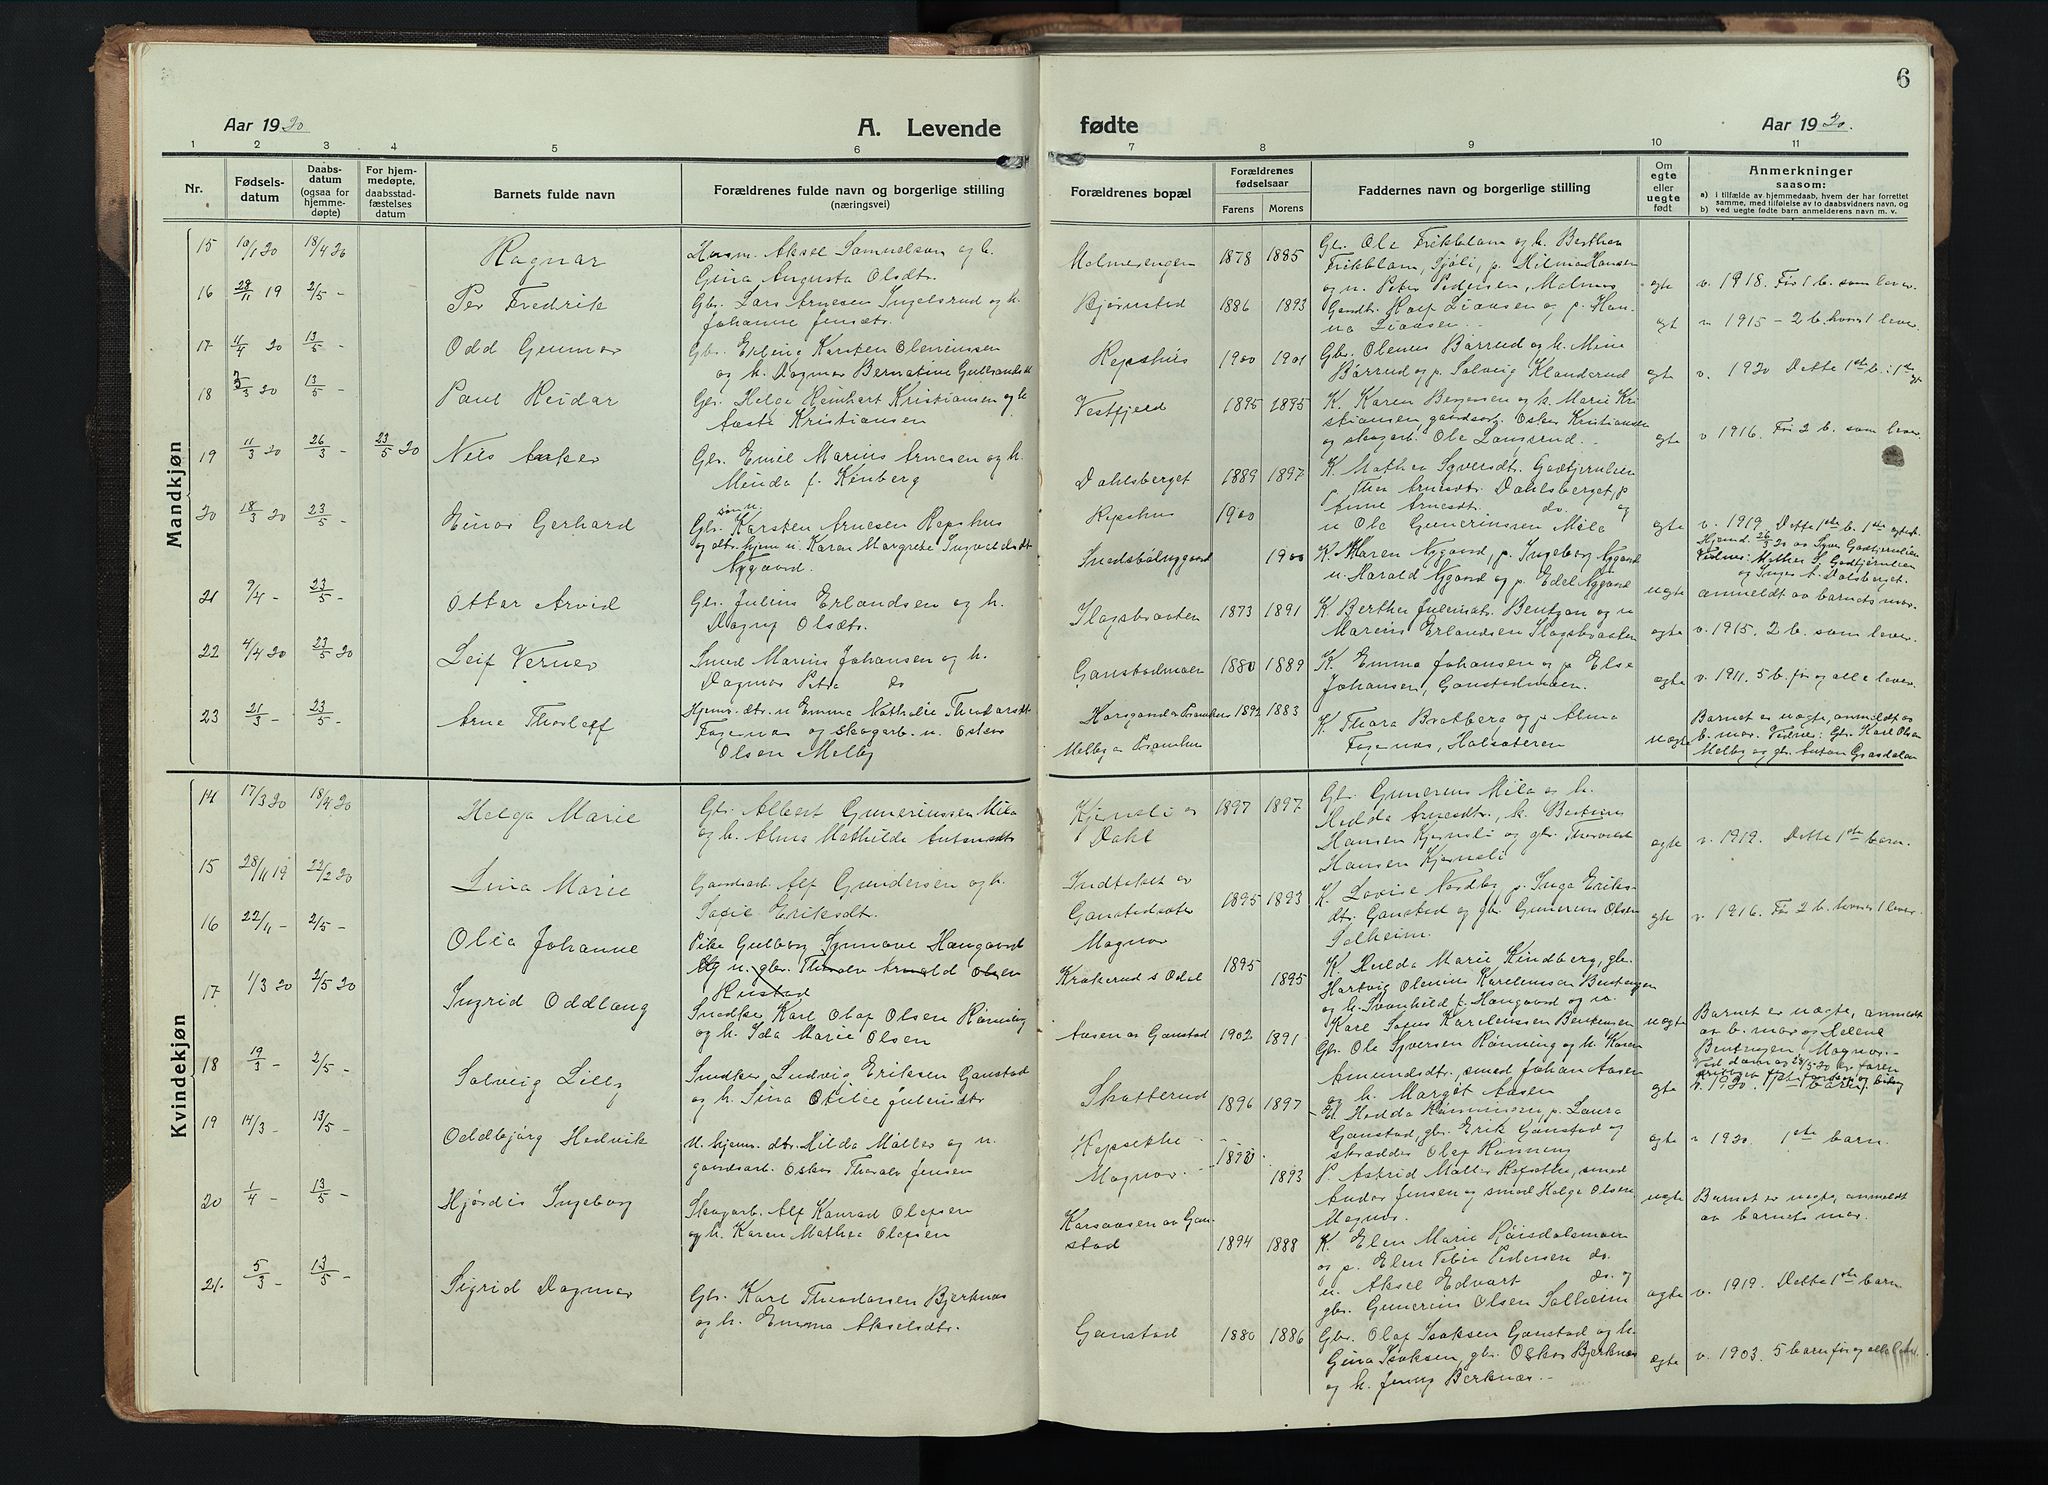 6
Aar 1920
A. Levende
fødte
Aar 1920.
1 2 3 4 5 6 7 8 9 10 11
Nr.
Fødselsdatum
Daabsdatum (ogsaa for hjemmedøpte)
For hjemmedøpte, daabsstadfæstelses datum
Barnets fulde navn
Forældrenes fulde navn og borgerlige stilling
(næringsvei)
Forældrenes bopæl
Forældrenes fødselsaar
Farens Morens
Faddernes navn og borgerlige stilling
Om egte eller uegte født
Anmerkninger
saasom:
a) i tilfælde av hjemmedaab, hvem der har forrettet samme, med tilføielse av to daabsvidners navn, og
b) ved uegte fødte barn anmelderens navn m. v.
Mandkjøn
15 10/1 20 18/4 20 Ragnar
Husm. Aksel Samuelsen og h.
Gina Augusta Olsdtr.
Malmerengen 1878 1885
Gbr. Ole Frikblom og h. Berthea
Frikblom, Sjøli, p. Hilma Hansen
og u. Peter Pedersen, Malmer
egte v. 1918. Før 1 b. som lever.
16 28/11 19 2/5 - Per Fredrik
Gbr. Lars Arnesen Ingelsrud og h.
Johanne Jensdtr.
Bjørnstad 1886 1893
Gaardbr. Olaf Liaasen og p. Hanna Liaasen.
egt v. 1915 - 2 b. hvorav 1 lever.
17 11/4 20 13/5 - Odd Gunnar
Gbr. Erling Karsten Olerinssen
og h. Dagmar Bernatine Gulbrandsdt
Repshus 1900 1901
Gbr. Olenus Børrud og h. Mina
Børrud og p. Solveig Klanderud
egte v. 1920 Dette 1ste b. i 1ste egt.
18 3/3 20 13/5 - Paul Reidar
Gbr. Helge Reinhart Kristiansen og h.
Aasta Kristiansen
Vestfjeld 1895 1895
K. Karen Bergersen og h. Marie Kristiansen, gaardsarb. Oskar Kristiansen
og skogarb. Ole Lansrud.
egte v. 1916. Før 2 b. som lever.
19 11/3 20 26/3 - 23/5 20 Nils Anker
Gbr. Emil Marius Arnesen og h.
Minda f. Kinberg
Dahlsberget 1889 1897
K. Mathea Syversdtr. Godtjernlien
Thea Arnesdtr. Dahlsberget, p
Anne Arnesdtr. do. og
u Ole Gunerinssen Mila
egte v. 1919. Dette 1ste b. i 1ste egtesk.
Hjemd. 26/3 20 av Syver Godtjernlien
Vidner: Mathea S. Godtjernlien
og Inga A. Dalsberget.
20 18/3 20 23/5 - Einar Gerhard
Gbr. Karsten Arnesen Repshus
og dtr. hjem. u. Karen Margrete Ingvaldsdtr
Nygaard.
Repshus 1900
Smedsbølnygaard 1900
K. Maren Nygaard, p. Ingeborg Nygaard
u. Harald Nygaard og p. Edel Nygaard
uegte anmeldt av barnets mor.
21 9/4 - 23/5 - Ottar Arvid
Gbr. Julius Erlandsen og h.
Dagny Olsdtr.
Slagsbraaten 1873 1891
K. Berthe Julensdtr. Bentzen og u
Marius Erlandsen Slagsbraaten
egte v. 1915. 2 b. som lever.
22 4/4 20 23/5 20 Leif Verner
Smed Marius Johansen og h.
Dagmar Petra do
Gaustadmoen 1880 1889
K. Emma Johansen og p. Else
Johansen, Gaustadmoen.
egte v. 1911. 5 b. før og alle lever.
23 21/3 - 23/5 - Arne Thorleif
Hjemv. dtr. u Emma Nathalie Theodorsdt.
Fagernæs og skogarb. u. Osten
Olsen Melby
1892 1883
K. Thora Bratberg og p. Alma
Fagernæs,
uegte
Barnet er uegte, anmeldt av
b. mor. Vidner: Gbr. Karl Olsen
Melby og gbr. Anton Græsdalen
Kvindekjøn
14 17/3 20 18/4 20 Helga Marie
Gbr. Albert Gunerinssen Mila
og h. Alma Mathilde Antonsdtr.
Kjernsli av
Dahl 1897 1897
Gbr. Gunerius Mila og h.
Hedda Arnesdtr., k. Bertine
Hansen Kjernsli og gbr. Thorvald
Hansen Kjernsli
egte v. 1919. Dette 1ste barn.
15 28/11 19 22/2 20 Lina Marie
Gaardsarb. Alf Gundersen og h.
Sofie Eriksdtr.
Gaustadsæter
1895 1893
K. Lovise Nordby p. Inga Eriksdtr. Gaustad og gbr. Gunerius Olsen
Solheim.
egte v. 1916. Før 2 b. hvorav 1 lever
16 22/11 - 2/5 - Olia Johanne
Pike Gulborg Synnøve Haugaard
og u. gbr. Thoralv Arnold Olsen
Rustad
Magnor
Krakerud S Odal 1895 1895
K. Hulda Marie Kindberg, gbr.
Hartvig Olenius Karelenssen Bentengen
og h. Svanhild f. Haugaard og u.
Karl Sofus Karelenssen Bentengen
uegte Barnet er uegte, anmeldt
av b. mor og Helene
Bentengen, Magnor.
17 1/3 20 2/5 20 Ingrid Oddlaug
Snedker Karl Olaf Olsen Rønning
og h. Ida Marie Olsen
Aasen av Gaustad 1902 1891
Gbr. Ole Syversen Rønning og h. Karen
Amundsdtr., smed Johan Aasen
og h. Margot Aasen
egte v. 1920. 1ste barn.
18 19/3 - 2/5 - Solveig Lilly
Snedker Ludvig Eriksen Gaustad
og h. Sina Otilie Julensdtr.
Skotterud 1896 1897
Hedda Rasmussen, p. Laura
Gaustad, gbr. Erik Gaustad og
skrædder Olaf Rønning
egte v. 1920. 1ste barn.
19 14/3 - 13/5 - Oddbjørg Hedvik
U. hjemv. dtr. Hilda Møller og u.
gaardsarb. Oskar Thoralv Jensen
Magnor. 1890 1893
P. Astrid Møller Repsæthe, smed
Andor Jensen og smed Helge Olsen
Magnor.
uegte Barnet er uegte, anmeldt
av barnets mor.
20 1/4 - 13/5 - Hjørdis Ingeborg
Skogarb. Alf Konrad Olafsen
og h. Karen Mathea Olafsen
Korsaasen av Gaustad 1894 1888
K. Elen Marie Røisdalsmoen
og p. Elen Tobia Pedersen do.
u. Aksel Edvart do. og
gbr. Gunerius Olsen Solheim
egte v. 1919. Dette 1ste barn
21. 5/3 - 13/5 - Sigrid Dagmar
Gbr. Karl Theodorsen Bjerknæs
og h. Emma Akselsdtr.
Gaustad 1880 1886
Gbr. Olaf Isaksen Gaustad og h.
Gina Isaksen, gbr. Oskar Bjerknæs
og h. Jenny Berknæs.
egte v. 1903. 5 barn før og alle lever.